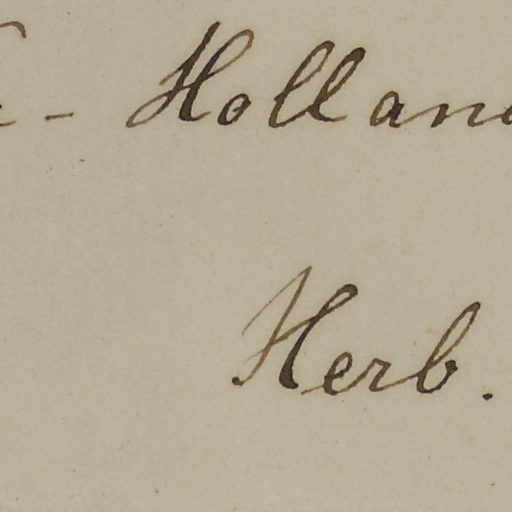 - Holland
Herb.